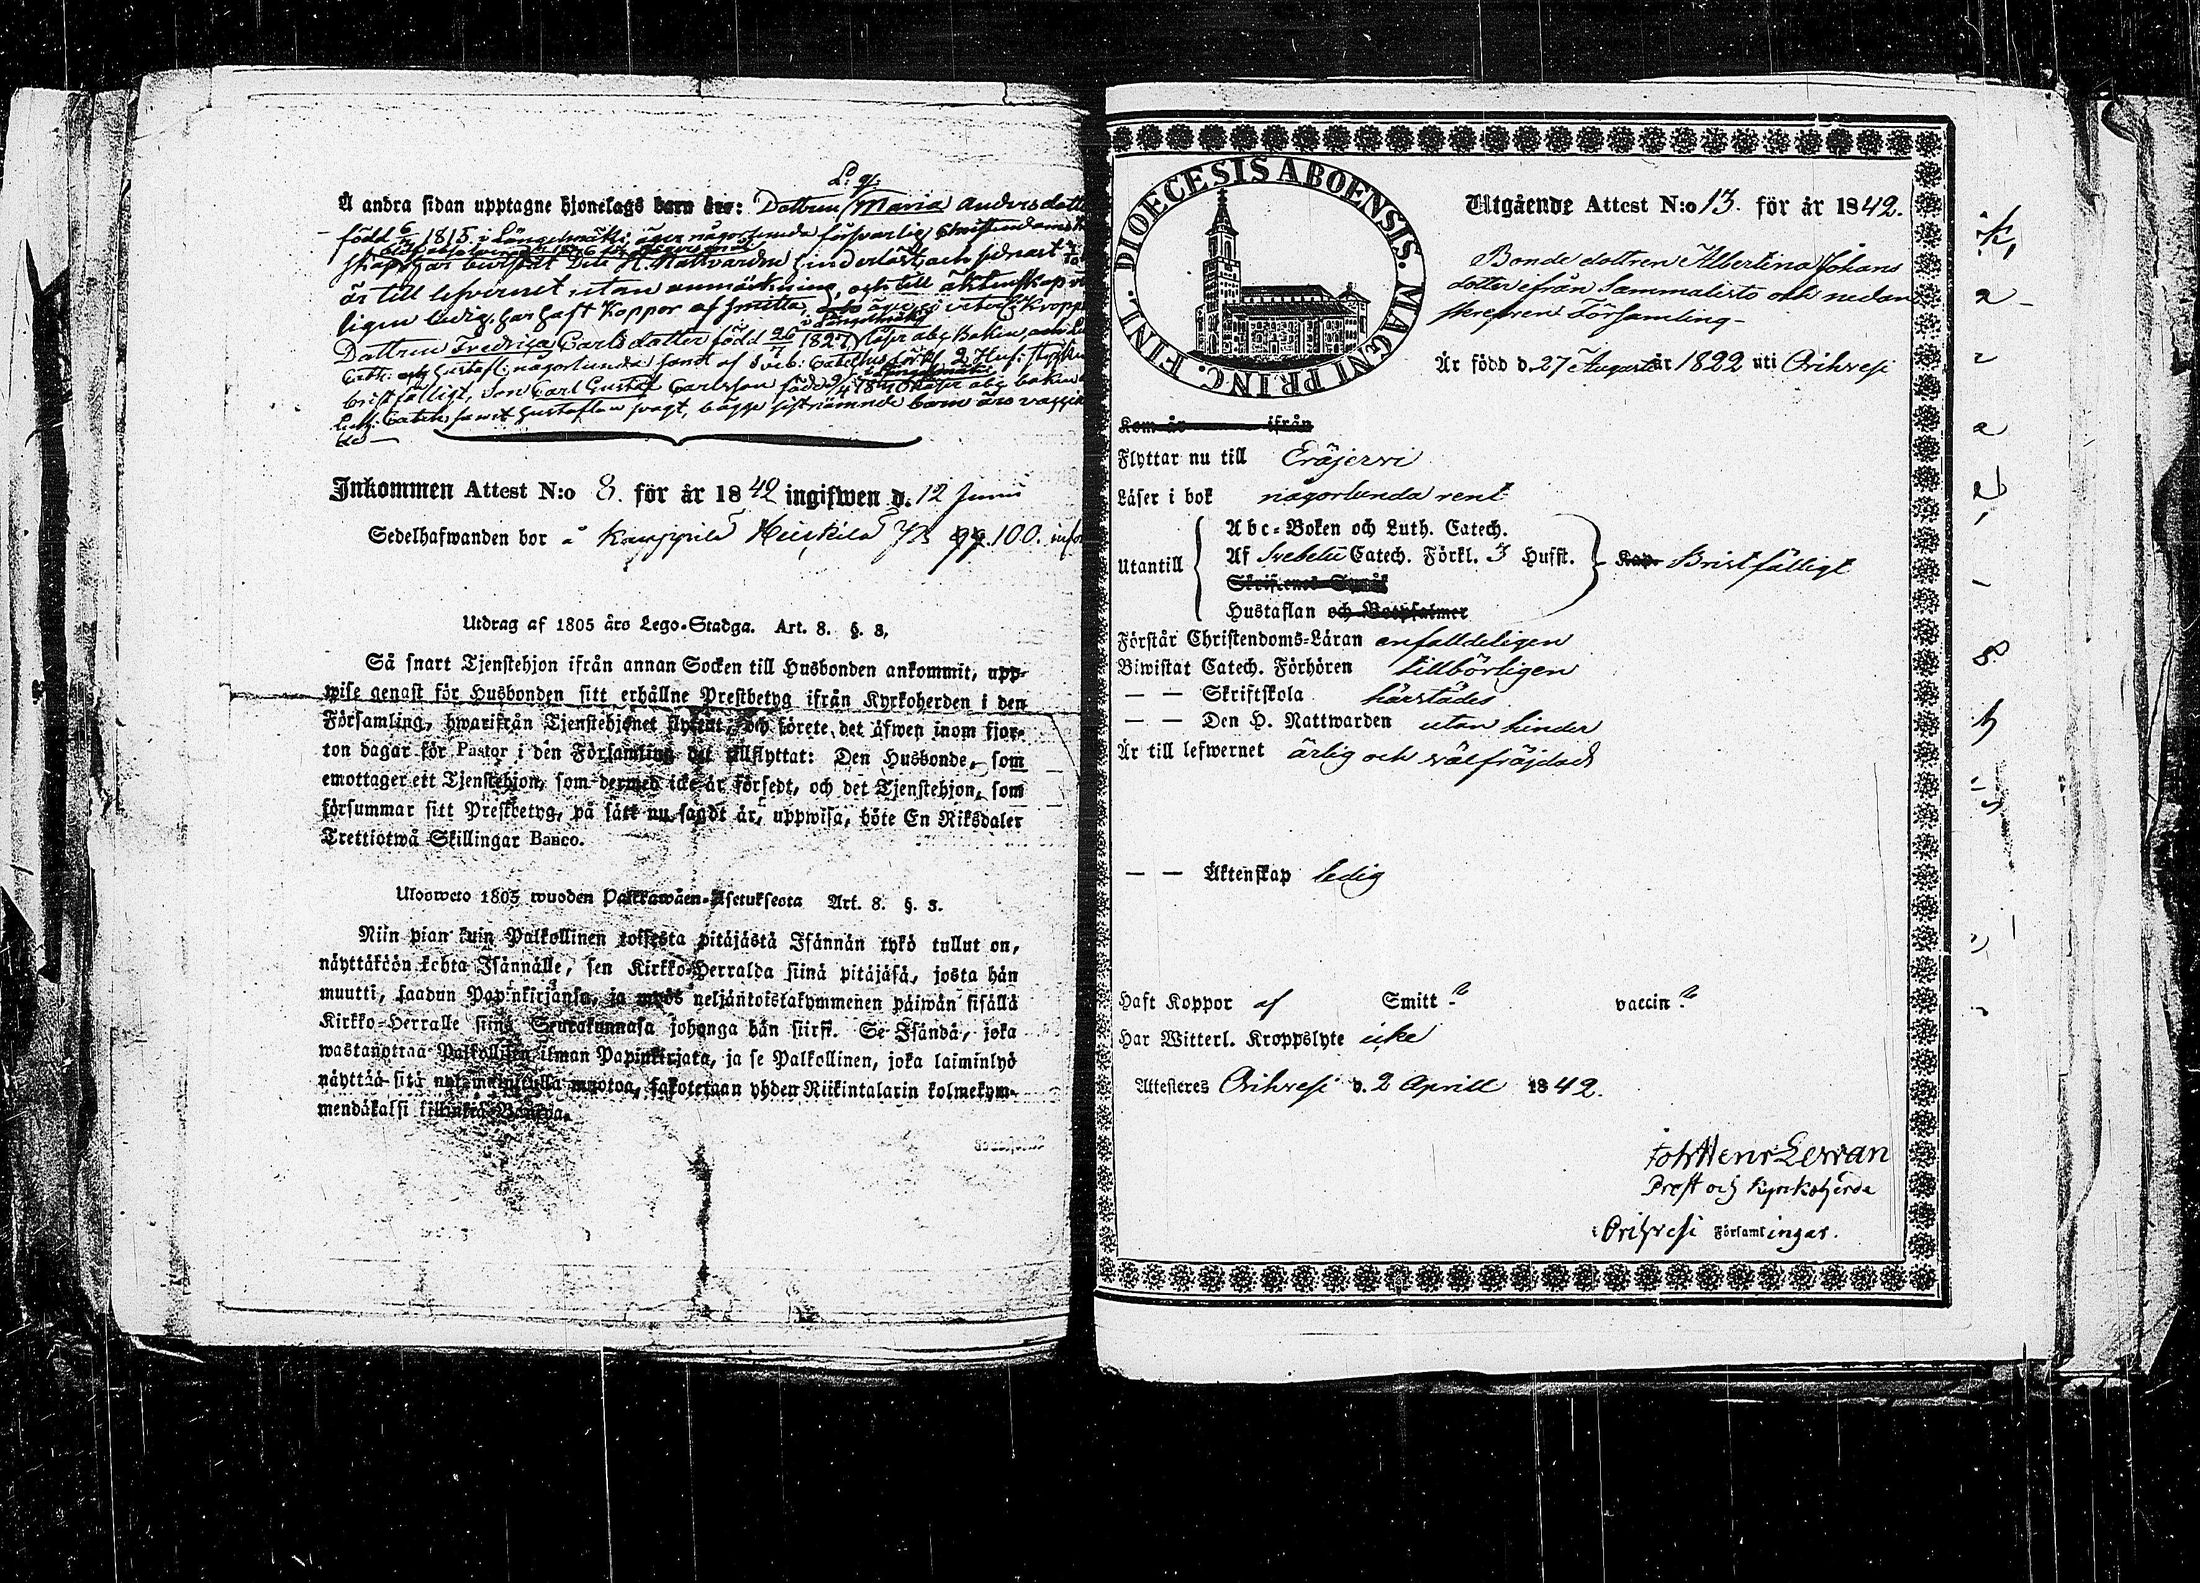 L. g.
Å andra sidan upptagne hjonelags barn äro: Dottren Maria Andersdott
född 6/12 1815 i Längelmäki, äger någorlunda försvarlig Christendoms k
skap, har bevistat Dess H. Nattvarden hinderlöst och senast
är till lefvernet utan anmärkning, och till äktenskap
ligen ledig, har haft Koppor af smitta, äger ej veterl. Kropps
Dottren Fredrica Carlsdotter född 26 1827, läser abc Boken, och L
Cateh: och Hustafl: någorlunda samt af Sveb: Catches förkl. 2 Huf: stycken
bristfälligt, Son Carl Gustaf Carlsson född läser abc boken
Luth: Catch samt Hustaflan svagt, bägge sistnämnde barn äro vaccine
de —
Inkommen Attest N:o 8. för år 1842 ingifwen d. 12 Junii
Sedelhafwanden bor å Kauppila Heickilä pg. 100.
Utdrag af 1805 års Lego-Stadga. Art. 8. §. 3.
Så snart Tjenstehjon ifrån annan Socken till Husbonden ankommit, upp-
wise genast för Husbonden sitt erhållne Prestbetyg ifrån Kyrkoherden i den
Församling, hwarifrån Tjenstehjonet flyttat, och förete det äfwen inom fjor-
ton dagar för Pastor i den Församling det tillflyttat: Den Husbonde, som
emottager ett Tjenstehjon, som dermed icke är försedt, och det Tjenstehjon, som
försummar sitt Prestbetyg, på sätt nu sagdt är, uppwisa, böte En Riksdaler
Trettiotwå Skillingar Banco.
Ulosweto 1805 wuoden Palkkawäen-Asetuksesta Art. 8. §. 3.
Niin pian kuin Palkollinen toisesta pitäjästä Isännän tykö tullut on,
näyttäköön kohta Isännälle, sen Kirkko-Herralda siinä pitäjäsä, josta hän
muutti, saadun Papinkirjansa, ja myös neljäntoistakymmenen päiwän sisällä
Kirkko-Herralle siinä Seurakunnasa johonga hän siirsi. Se Isändä, joka
wastanottaa Palkollisen ilman Papinkirjata, ja se Palkollinen, joka laiminlyö
näyttää sitä nyt muotoa, sakotetaan yhden Riikintalarin kolmekym-
mendäkaksi killinkiä Bankoa.
DIOECESIS ABOENSIS. MAGNI PRINC. FINL.
Utgående Attest N:o 13. för år 1842.
Bonde dottren Albertina Johans
dotter ifrån Sammalisto och nedan
skrefven Församling-
Är född d. 27 Augusti år 1822 uti Orihvesi
Kom år ifrån
Flyttar nu till Eräjervi
Läser i bok någorlunda rent
Utantill
Abc-Boken och Luth. Catech.
Af Svebelii Catech. Förkl. 3 Hufst.
Kap. Bristfälligt
Skriftenes Språk
Hustaflan och Botpsalmer
Förstår Christendoms-Läran enfalldeligen
Biwistat Catech. Förhören tillbörligen
— — Skriftskola härstädes
— — Den H. Nattwarden utan hinder
Är till lefwernet ärlig och välfräjdad
— — Äktenskap ledig
Haft Koppor af Smitt ? vaccin ?
Har Witterl. Kroppslyte icke
Attesteres Orihvesi d. 2 Aprill 1842.
Joh Henr Lewan
Prost och Kyrkoherde
i Orihvesi Församlingar.